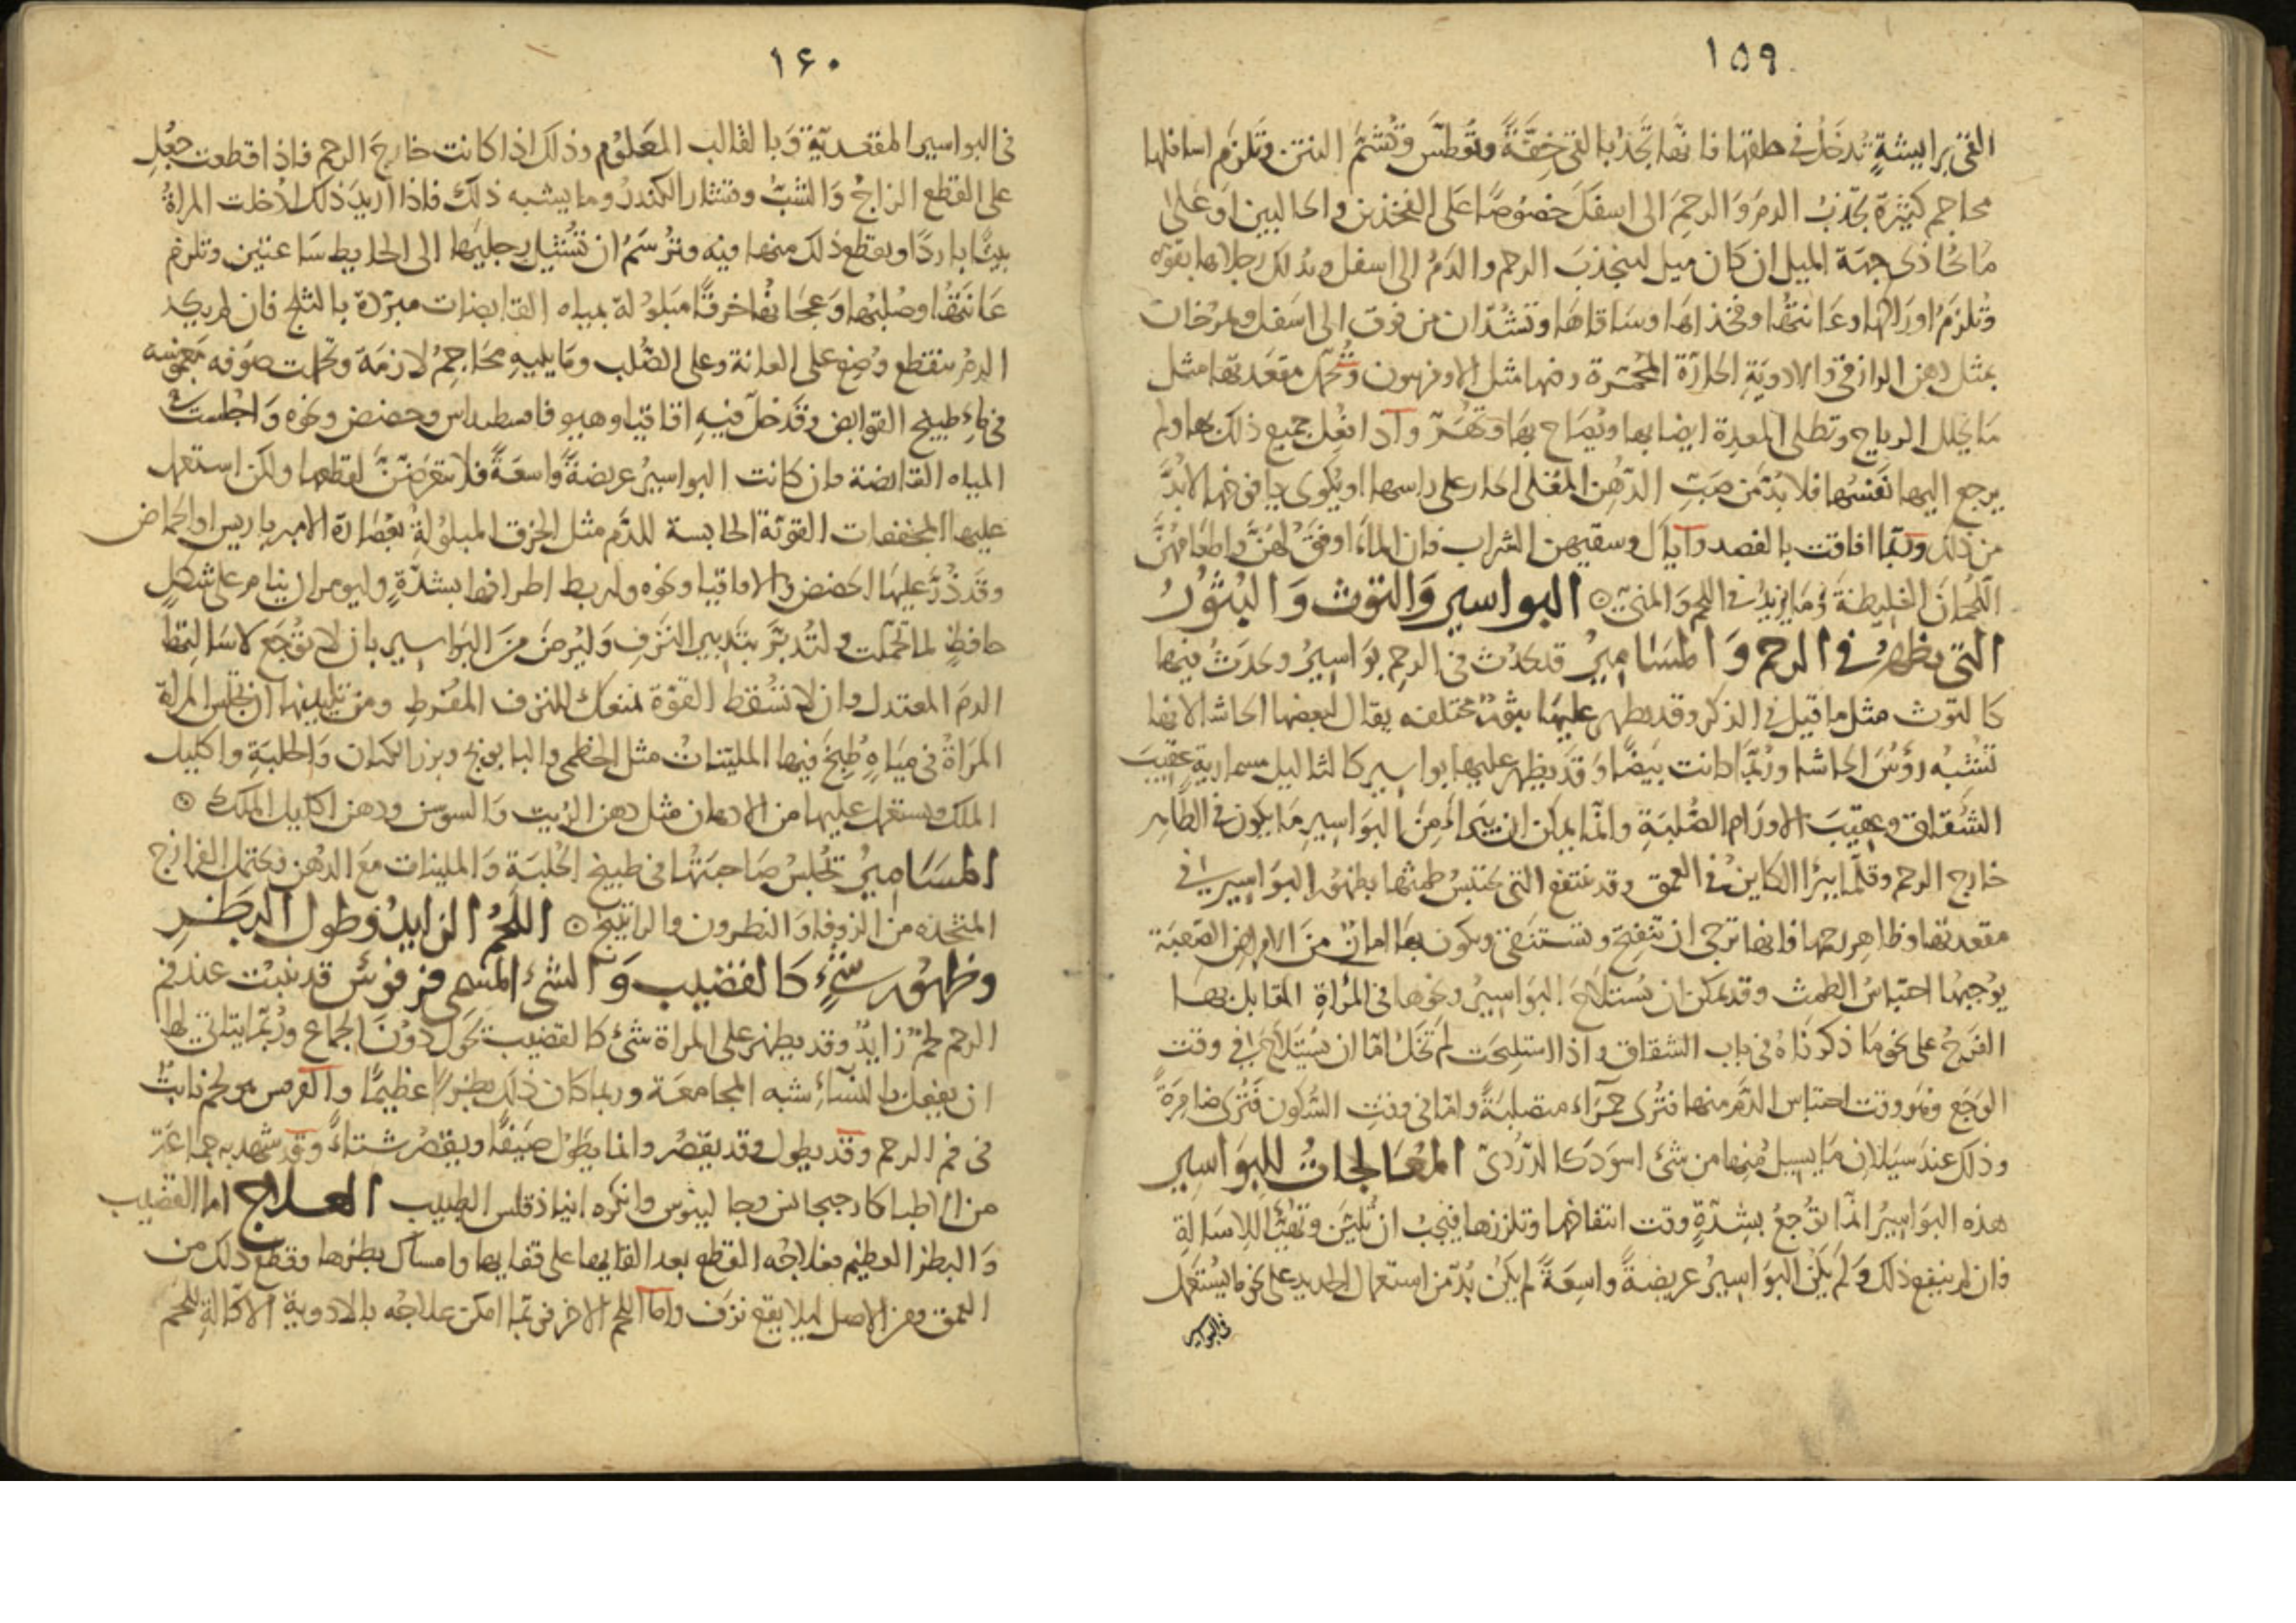 ١٥٩
القئ بريشةٍ تُدخَلُ في حلقها فانها تَجدُ بالقئ خِفَّةً وتُعطَّس وتُشمَّم النتن وتلزم اسافلها
محاجم كثيرة تجذبُ الدمَ وَالرحِمَ الى اسفلَ خصُوصًا على الفخذين والحالبين اوَ على
مَا يُحاذى جهَة الميل ان كان ميل لينجذبَ الرحم والدَمُ الى اسفل ويدلك رجلاها بقوه
وتُلزَمُ اورَاكها وعَانتهُا وفخذاهَا وسَاقاهَا وتشدّان من فوق الى اسفل وتمرخان
بمثل دهن الرازقى والادويَةِ الحارّة المحمّرة ومنها مثل الاوفربيون وتُحمّل مقعدتها مثل
مَا يحلل الرياح وتطلى المعدة ايضا بها ويُصَاح بهَا وتهُزّ واذا فعُِل جميع ذلك بها ولم
يرجع اليها نَفَسُها فلا بُدّ مَن صَبّ الدّهن المُغلى الحار على راسها او يُكوى يافوخها لا بُدّ
من ذلك وربّما افاقت بالفصد واياك وسقيهن الشراب فان الماءَ اوفقُ لهُنّ واطعامهُنّ
اللّحمَانَ الغليظة وَمَا يزيدُ في اللحم وَالمنىّ ۞ البواسير وَالتوث وَ البُثورُ
التى يظهرُ في الرحم وَ المسَاميرُ قد يحدُث في الرحِم بوَاسِيرُ ويحدَثُ فيها
كالتوث مثل ما قيل في الذكر وقد يظهر عليهَا بثورٌ مختلفه يقال لبعضها الحاشا لانها
تشبهُ رؤسَ الحاشا وربمّا كانت بَيضًا وَ قد يظهر عليها بواسير كالثاليل مسمارية عقيبَ
الشقاق وعِقيَب الاورَام الصُّلبَةِ وانمّا يمكن ان يَبرأ مِنَ البوَاسِير مَا يكون في الظّاهر
خارج الرحم وقلّما يبرَا الكاينُ في العمق وقد تنتفع التى يحتبسُ طمثها بظهُور البوَاسيرُ في
مقعدتها وظاهِر رحمها فانها ترجى ان تنفتحَ وتستنقى ويكون بهَا امانٌ منَ الامرَاض الصّعبَة
يوُجبهُا احتبَاسُ الطمث وقد يمكن ان يُستلاحَ البوَاسيرُ ونحوها في المرَاةِ المقابل بها
الفَرجُ على نحو مَا ذكرنَاهُ في باب الشقاق واذا استليحَت لَم تَخلُ امّا ان يُستلاحَ في وقت
الوَجَع ونهو وقت احتباس الدَّم منها فتُرى حمرَاءَ متصلبَةً وامّا فى وقتِ السُكون فتُرى ضامِرَةً
وذلك عندَ سَيَلانِ مَا يسيل مُنِها من شئ اسوَدَ كالدّرُدىّ المُعَالجَاتُ للِبوَاسيرِ
هذه البوَاسِيرُ انّما توُجعُ بِشِدّةٍ وقت انتفاخها وتلززها فيَجبُ ان تُليَّن وتهَيَّأ للِاسَالةِ
فان لم ينفع ذلك وَلَم يَكُن البوَاسِيرُ عريضةً واسِعَةً لم يَكُن بُدّ من استعمال الحديد على نحو ما يُستعَمل
في البواسير
١٤٠
في البواسير المقعديّة وَبالقالب المعَلوُم وذلك اذا كانت خارجَ الرحم فاذا قطعت جعُِل
على القطع الزاجُ وَالشبُّ وقشار الكندُر وما يشبه ذلكَ فاذا اُريدَ ذلك اُدخلت المراةُ
بيتًا باردًا ويقطع ذلك منها فيه وترُسَمُ ان تُشيل رجليهَا الى الحايط سَاعتين وتلزم
عَانتهُا وصُلبُها وَعجَانهُا خرقًا مَبلوُلة بمياه القابضات مبرّدة بالثلج فان لم يكد
الدمُ ينقطع وُضِع على العانة وعلى الصُّلب ومَا يليهِ محَاجِمُ لازمَة وتحملت صوَفه مغموسه
في مَاءِ طبيخ القوابض وقدَ حُلّ فيهِ اقاقيا وهيو فاسطيداس وحضض ونحوه وَاجلست في
المياه القابضة وان كانت البواسيرُ عريضةً واسعَةً فلا تتعرّضَنّ لقطعها ولكن استعمل
عليها المجففات القوّية الحابسة للدّم مثل الخرق المبلوُلةِ بعُصَارة الامبرباريس اوالحماض
وقدَ ذُرّ عليهَا الحضض والاقاقيا ونحوه وليربط اطرافها بشدّةٍ وليومر ان ينام على شكلٍ
حافظٍ لما تحملت ولتُدبّرَ بتدبير النزفِ وَليُرض منَ البوَاسير بان لا توُجَع لاسَالتها
الدمَ المعتدل وان لا تسُقط القوّة لمنعك للنزف المفُرطِ ومن تليينها ان تجلس المراة
المرَاةُ في ميَاهٍ طُبِخَ فيها المليّناتُ مثل الخطمى والبابونج وبزر الكتان وَالحلبَةِ واكليل
الملك ويستعمل عليها من الادهان مثل دهن الزيت وَالسوسن ودهن اكليل الملك ۞
المسَاميرُ تُجلسُ صَاحبَتهُا في طبيخ الحُلبَةِ وَالملينات معَ الدهُن وتحتمل الفرازج
المتخذه من الزوفا وَالنطرون والراتينج ۞ اللّحمُ الزايدُ وطول البَظرِ
وظهوُر شئٍ كالقضيب وَ الشئ المسمى قرقوُس قد ينبُت عند فم
الرحم لحمٌ زايدٌ وقد يظهر على المراة شئ كالقضيب يحَوُل دوُنَ الجماع ورُبّما يتاتى لها
ان يفعل بالنسَاءِ شبه المجامعَة وربما كان ذلك بظرًا عظيمًا واالقرقس هو لحم نابتٌ
في فم الرحم وقد يطول وقد يقصُر وانما يطَولُ صَيفًا ويقصُرُ شتاءً وقد شهد به جماعَة
من الاطبا كارجيجانس وجالينوس وانكره انباذقلس الطبيب العـلاج اما القضيب
وَالبظر العظيم فعلاجُه القطع بعد القايها على قفايها وامساك بظرها وقطع ذلك من
العمق ومن الاصل ليلا يقع نزف واما اللحم الاخر فربّما امكن علاجُه بالادوية الاكالةِ للّحم